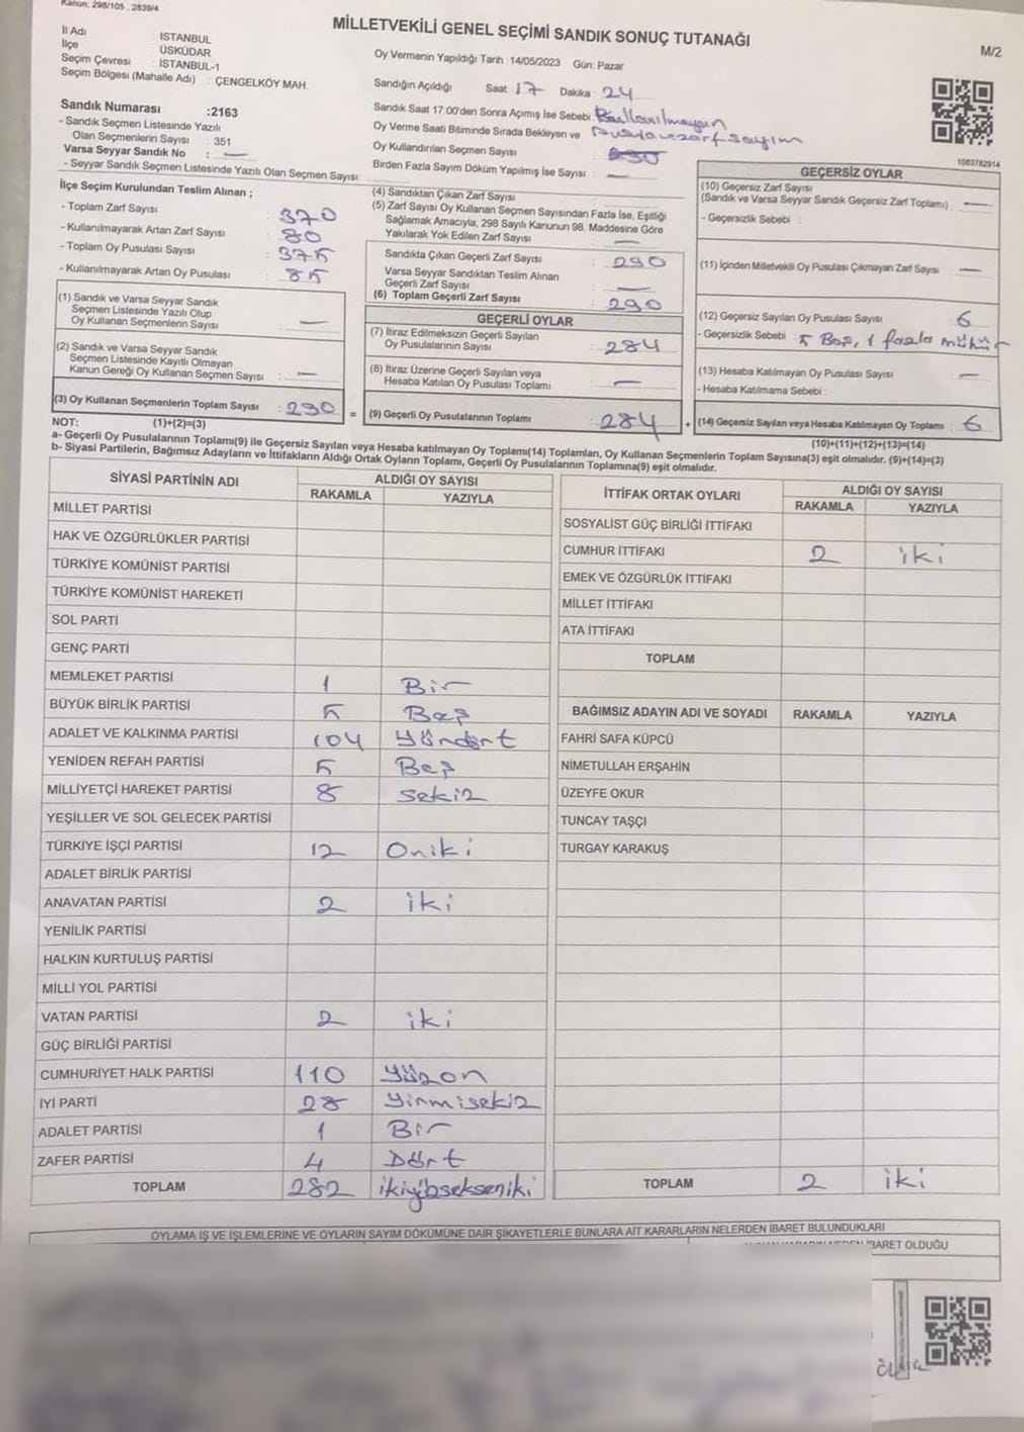 Kanun: 298/105 , 2839/4
MİLLETVEKİLİ GENEL SEÇİMİ SANDIK SONUÇ TUTANAĞI
M/2
İl Adı İSTANBUL
İlçe ÜSKÜDAR
Seçim Çevresi İSTANBUL-1
Seçim Bölgesi (Mahalle Adı) : ÇENGELKÖY MAH.
Oy Vermenin Yapıldığı Tarih :14/05/2023 Gün: Pazar
Sandığın Açıldığı Saat 17 Dakika 24
Sandık Saat 17.00'den Sonra Açılmış İse Sebebi: Kullanılmayan
Oy Verme Saati Bitiminde Sırada Bekleyen ve Pusula ve zarf sayım
Oy Kullandırılan Seçmen Sayısı
Birden Fazla Sayım Döküm Yapılmış İse Sayısı : —
1003782914
Sandık Numarası :2163
- Sandık Seçmen Listesinde Yazılı
Olan Seçmenlerin Sayısı : 351
Varsa Seyyar Sandık No : —
- Seyyar Sandık Seçmen Listesinde Yazılı Olan Seçmen Sayısı:
İlçe Seçim Kurulundan Teslim Alınan ;
- Toplam Zarf Sayısı : 370
- Kullanılmayarak Artan Zarf Sayısı : 80
- Toplam Oy Pusulası Sayısı : 375
- Kullanılmayarak Artan Oy Pusulası : 85
(1) Sandık ve Varsa Seyyar Sandık
Seçmen Listesinde Yazılı Olup
Oy Kullanan Seçmenlerin Sayısı : —
(2) Sandık ve Varsa Seyyar Sandık
Seçmen Listesinde Kayıtlı Olmayan
Kanun Gereği Oy Kullanan Seçmen Sayısı : —
(3) Oy Kullanan Seçmenlerin Toplam Sayısı : 290
(1)+(2)=(3)
(4) Sandıktan Çıkan Zarf Sayısı
(5) Zarf Sayısı Oy Kullanan Seçmen Sayısından Fazla İse, Eşitliği
Sağlamak Amacıyla, 298 Sayılı Kanunun 98. Maddesine Göre
Yakılarak Yok Edilen Zarf Sayısı —
Sandıkta Çıkan Geçerli Zarf Sayısı : 290
Varsa Seyyar Sandıktan Teslim Alınan
Geçerli Zarf Sayısı : —
(6) Toplam Geçerli Zarf Sayısı : 290
GEÇERLİ OYLAR
(7) İtiraz Edilmeksizin Geçerli Sayılan
Oy Pusulalarının Sayısı : 284
(8) İtiraz Üzerine Geçerli Sayılan veya
Hesaba Katılan Oy Pusulası Toplamı : —
= (9) Geçerli Oy Pusulalarının Toplamı : 284
GEÇERSİZ OYLAR
(10) Geçersiz Zarf Sayısı
(Sandık ve Varsa Seyyar Sandık Geçersiz Zarf Toplamı) : —
- Geçersizlik Sebebi :
(11) İçinden Milletvekili Oy Pusulası Çıkmayan Zarf Sayısı : —
(12) Geçersiz Sayılan Oy Pusulası Sayısı : 6
- Geçersizlik Sebebi : 5 Boş, 1 fazla mühür
(13) Hesaba Katılmayan Oy Pusulası Sayısı : —
- Hesaba Katılmama Sebebi :
+ (14) Geçersiz Sayılan veya Hesaba Katılmayan Oy Toplamı : 6
(10)+(11)+(12)+(13)=(14)
NOT:
a- Geçerli Oy Pusulalarının Toplamı(9) ile Geçersiz Sayılan veya Hesaba katılmayan Oy Toplamı(14) Toplamları, Oy Kullanan Seçmenlerin Toplam Sayısına(3) eşit olmalıdır. (9)+(14)=(3)
b- Siyasi Partilerin, Bağımsız Adayların ve İttifakların Aldığı Ortak Oyların Toplamı, Geçerli Oy Pusulalarının Toplamına(9) eşit olmalıdır.
SİYASİ PARTİNİN ADI ALDIĞI OY SAYISI
RAKAMLA YAZIYLA
MİLLET PARTİSİ
HAK VE ÖZGÜRLÜKLER PARTİSİ
TÜRKİYE KOMÜNİST PARTİSİ
TÜRKİYE KOMÜNİST HAREKETİ
SOL PARTİ
GENÇ PARTİ
MEMLEKET PARTİSİ 1 Bir
BÜYÜK BİRLİK PARTİSİ 5 Beş
ADALET VE KALKINMA PARTİSİ 104 Yüzdört
YENİDEN REFAH PARTİSİ 5 Beş
MİLLİYETÇİ HAREKET PARTİSİ 8 Sekiz
YEŞİLLER VE SOL GELECEK PARTİSİ
TÜRKİYE İŞÇİ PARTİSİ 12 Oniki
ADALET BİRLİK PARTİSİ
ANAVATAN PARTİSİ 2 iki
YENİLİK PARTİSİ
HALKIN KURTULUŞ PARTİSİ
MİLLİ YOL PARTİSİ
VATAN PARTİSİ 2 iki
GÜÇ BİRLİĞİ PARTİSİ
CUMHURİYET HALK PARTİSİ 110 Yüzon
İYİ PARTİ 28 Yirmisekiz
ADALET PARTİSİ 1 Bir
ZAFER PARTİSİ 4 Dört
TOPLAM 282 ikiyüzsekseniki
İTTİFAK ORTAK OYLARI ALDIĞI OY SAYISI
RAKAMLA YAZIYLA
SOSYALİST GÜÇ BİRLİĞİ İTTİFAKI
CUMHUR İTTİFAKI 2 iki
EMEK VE ÖZGÜRLÜK İTTİFAKI
MİLLET İTTİFAKI
ATA İTTİFAKI
TOPLAM
BAĞIMSIZ ADAYIN ADI VE SOYADI RAKAMLA YAZIYLA
FAHRİ SAFA KÜPCÜ
NİMETULLAH ERŞAHİN
ÜZEYFE OKUR
TUNCAY TAŞÇI
TURGAY KARAKUŞ
TOPLAM 2 iki
OYLAMA İŞ VE İŞLEMLERİNE VE OYLARIN SAYIM DÖKÜMÜNE DAİR ŞİKAYETLERLE BUNLARA AİT KARARLARIN NELERDEN İBARET BULUNDUKLARI
İBARET OLDUĞU